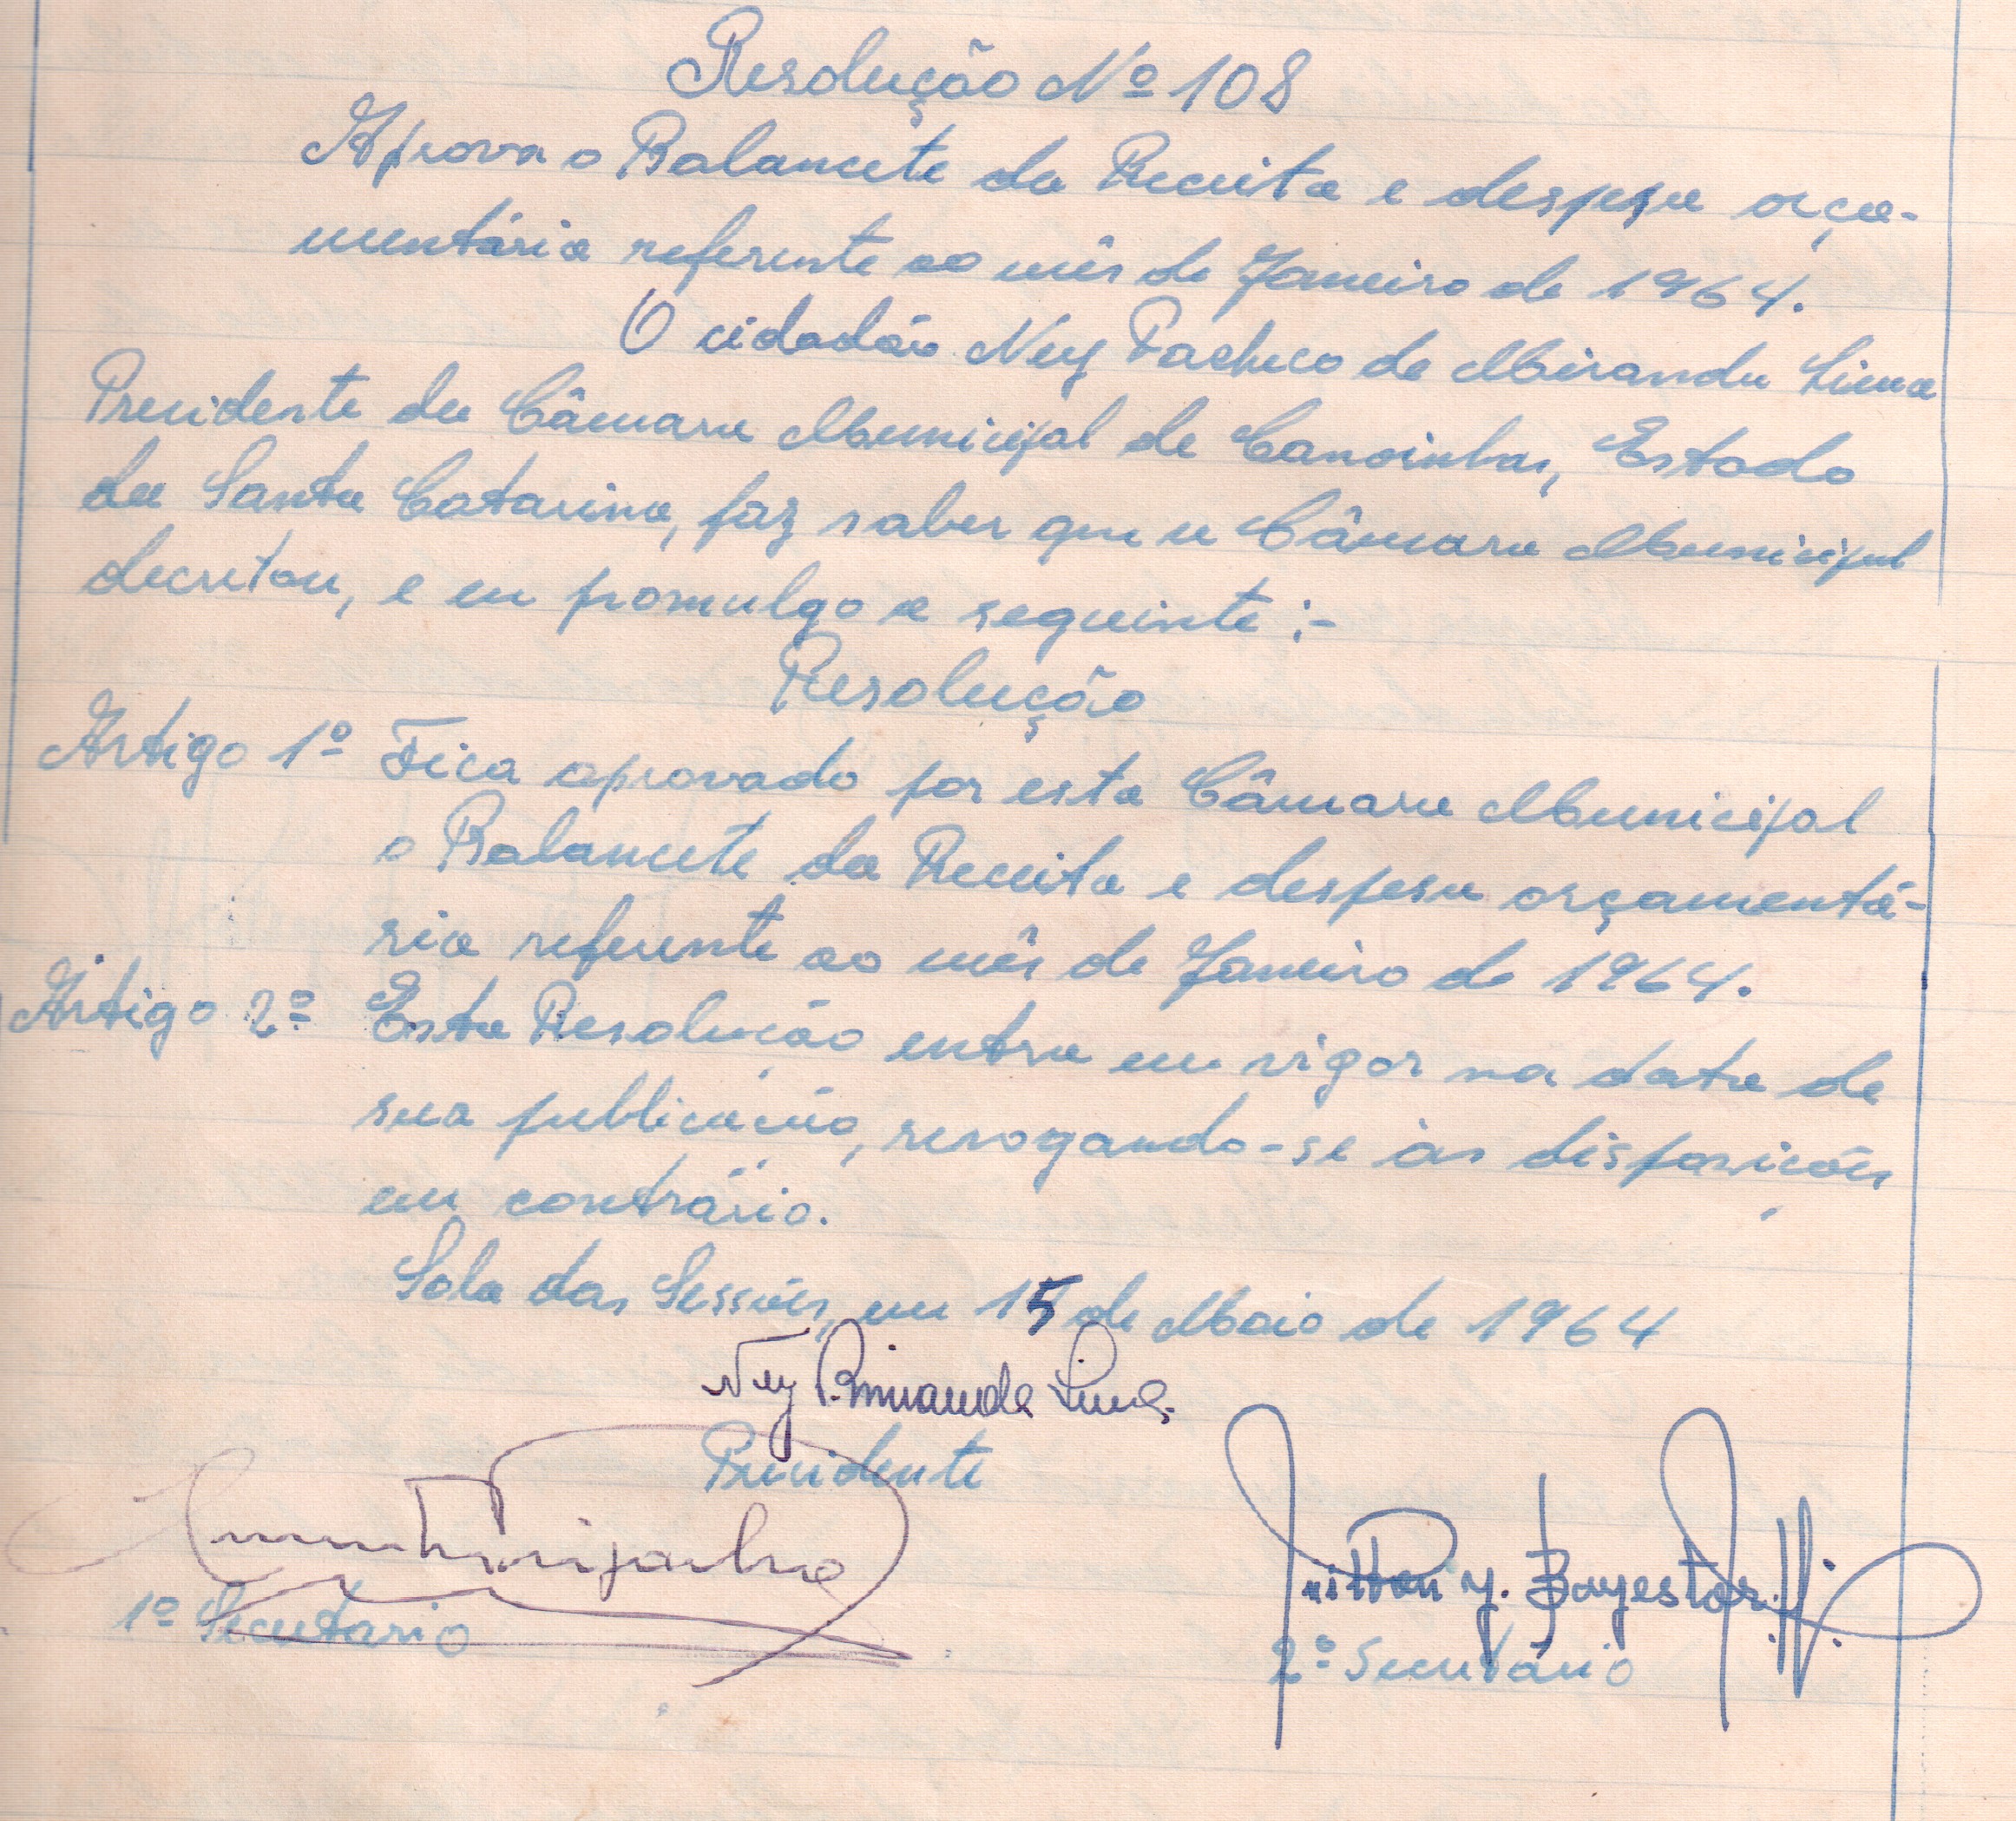 Resolução Nº 108
Aprova o Balancete da Receita e despesa orça-
mentária referente ao mês de Janeiro de 1964.
O cidadão Ney Pacheco de Miranda Lima
Presidente da Câmara Municipal de Canoinhas, Estado
de Santa Catarina, faz saber que a Câmara Municipal
decretou, e eu promulgo a seguinte :-
Resolução
Artigo 1º Fica aprovado por esta Câmara Municipal
o Balancete da Receita e despesa orçamentá-
ria referente ao mês de Janeiro de 1964.
Artigo 2º Esta Resolução entra em vigor na data de
sua publicação, revogando-se às disposições
em contrário.
Sala das Sessões, em 15 de Maio de 1964
Ney P. Miranda Lima
Presidente
1º Secretario
2º Secretário